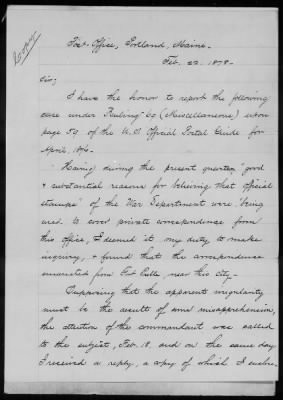 Copy
Post Office, Portland, Maine.
Feb. 22. 1878.
Sir;
I have the honor to report the following
case under Ruling 62 (Miscellaneous) upon
page 59 of the U.S. Official Postal Guide for
April 1876.
Having during the present quarter "good
& substantial reasons for believing that official
stamps" of the War Department were "being
used to cover private correspondence from
this office", I deemed it my duty to make
inquiry, & found that the correspondence
emanated from Fort Preble, near this city.
Supposing that the apparent irregularity
must be the result of some misapprehension,
the attention of the commandant was called
to the subject, Feb. 18, and on the same day
I received a reply, a copy of which I enclose,